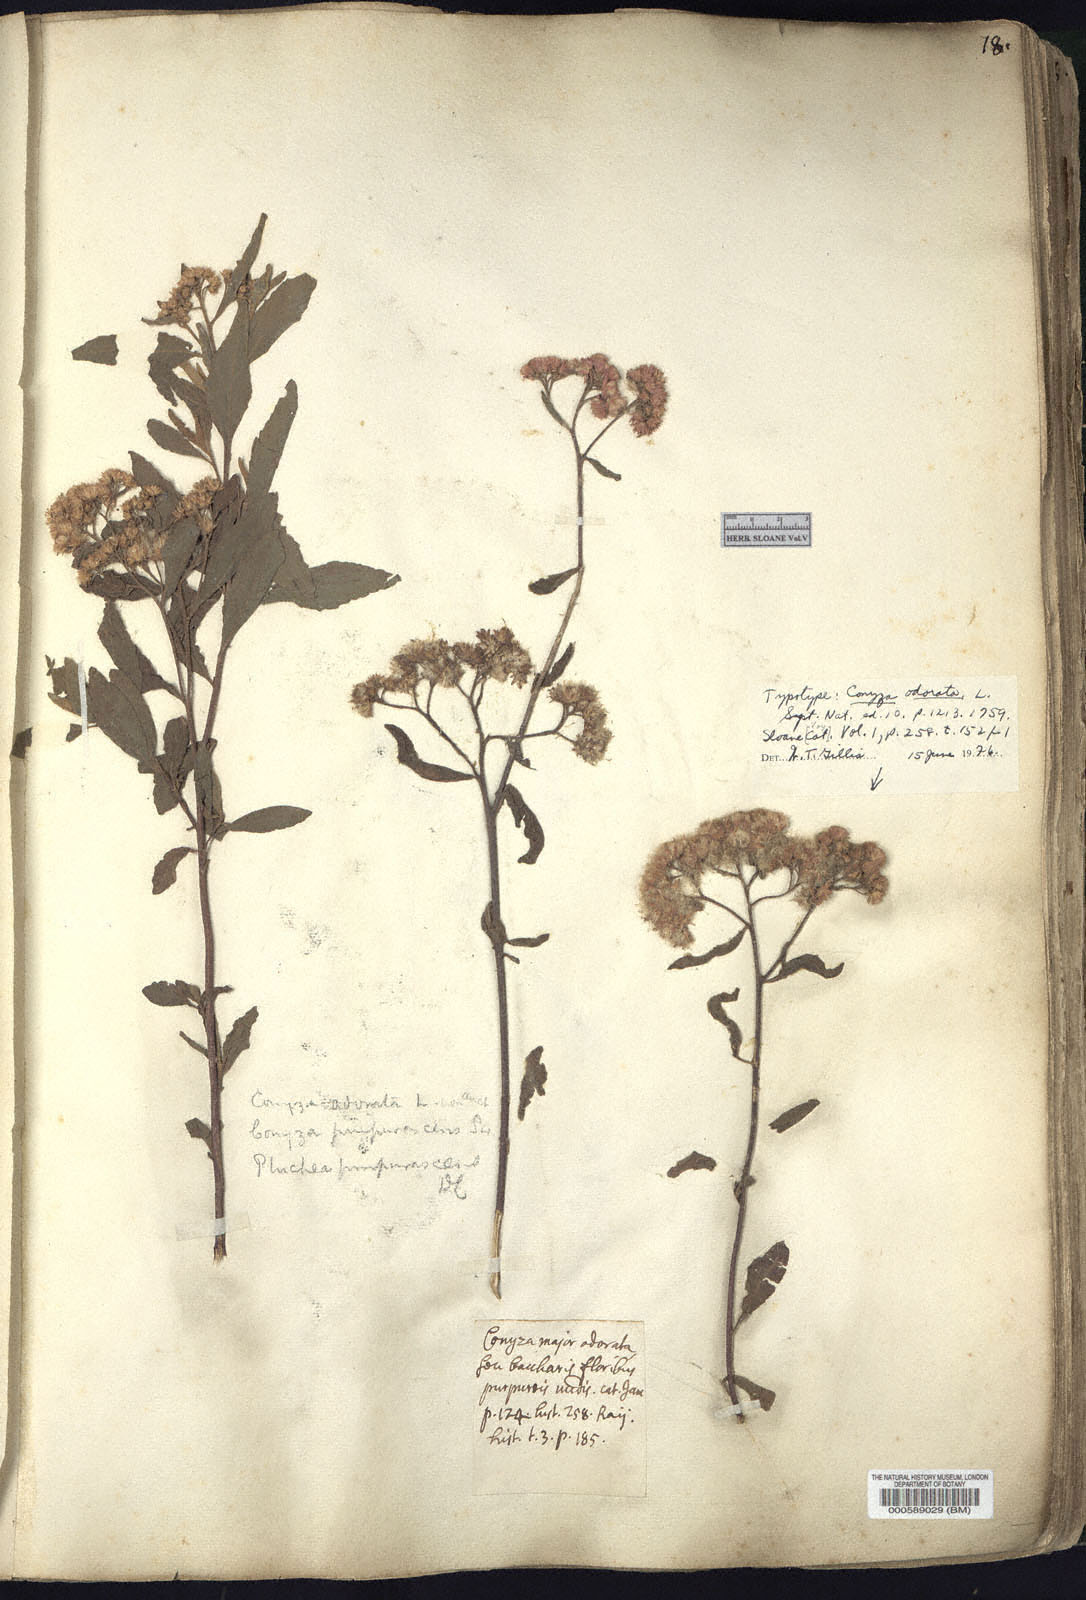 18.
HERB. SLOANE Vol. V
Typotype: Conyza odorata, L.
Syst. Nat. ed. 10. p. 1213. 1759.
Sloane Cat. Vol. 1, p. 258. t. 152 f. 1
DET. W. T. Gillis 15 June 1976.
Conyza odorata L.
Conyza purpurascens
Pluchea purpurascens
DC
Conyza major odorata
seu baccharis floribus
purpureis nudis. cat. Jam
p. 124. hist. 258. Raij.
hist. t. 3. p. 185.
THE NATURAL HISTORY MUSEUM, LONDON
DEPARTMENT OF BOTANY
000589029 (BM)